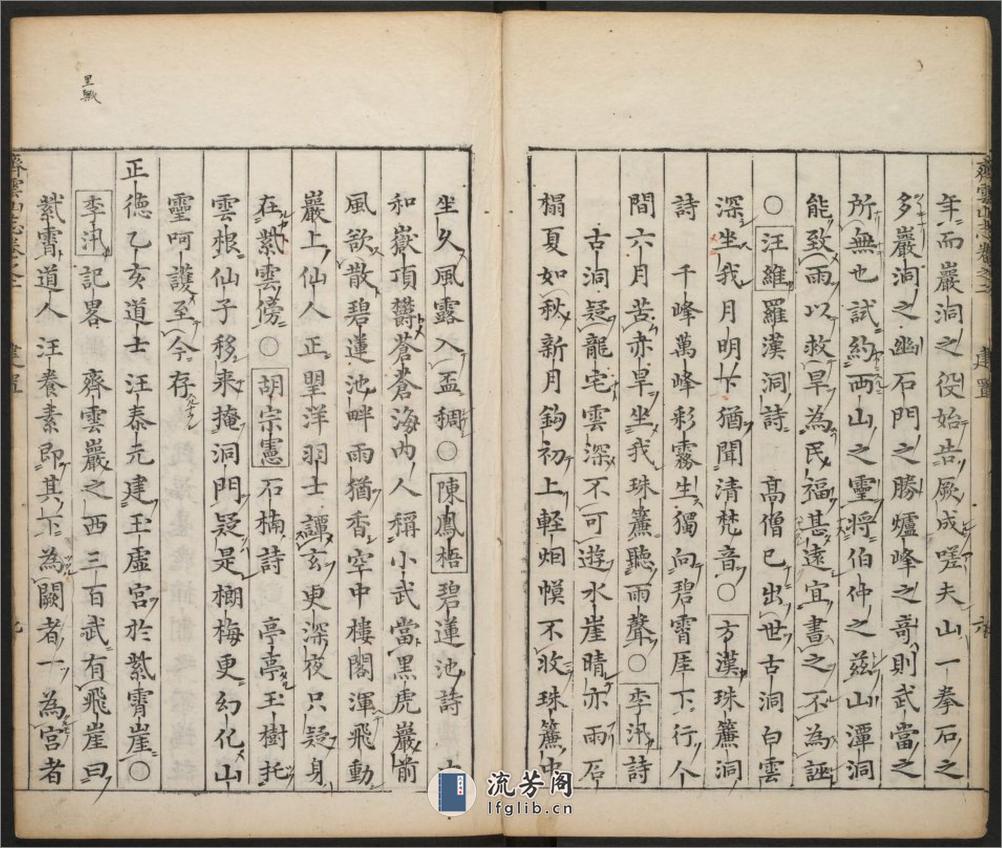 齊雲山志卷之二 建置 六
年而巖洞之役始告厥成嗟夫山一拳石之
多巖洞之幽石門之勝爐峰之竒則武當之
所無也試約兩山之靈將伯仲之茲山潭洞
能致雨以救旱為民福甚遠宜書之不為誣
○汪維羅漢洞詩 高僧已出世古洞白雲
深坐我月明下猶聞清梵音○方漢珠簾洞
詩 千峰萬峰彩霧生獨向碧霄厓下行人
間六月苦赤旱坐我珠簾聽雨聲○李汛詩
古洞疑龍宅雲深不可遊水崖晴亦雨石
榻夏如秋新月鈎初上輕烟幙不收珠簾中
坐久風露入盃稠○陳鳳梧碧蓮池詩
和嶽頂欝蒼蒼海内人稱小武當黒虎巖前
風欲散碧蓮池畔雨猶香空中樓閣渾飛動
巖上仙人正望洋羽士譚玄更深夜只疑身
在紫雲傍○胡宗憲石楠詩 亭亭玉樹托
雲根仙子移来掩洞門疑是榔梅更幻化山
靈呵護至今存
正德乙亥道士汪泰元建玉虛宫於紫霄崖○
李汛記畧 齊雲巖之西三百武有飛崖曰
紫霄道人汪養素即其下為闕者一為宫者
齊雲山志卷之二 建置 九
流芳阁
lfglib.cn